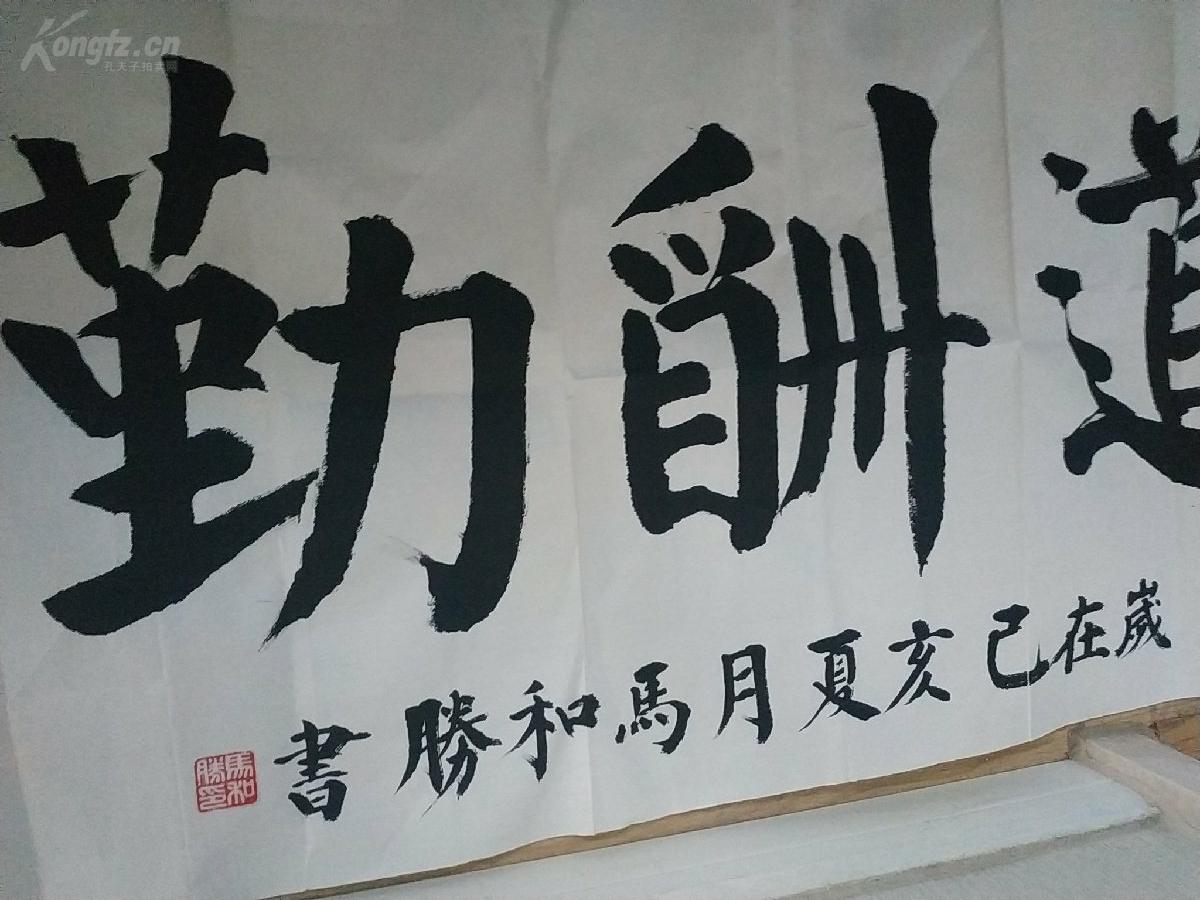 Kongfz.cn
孔夫子拍卖网
道酬勤
嵗在己亥夏月馬和勝書
馬和勝印